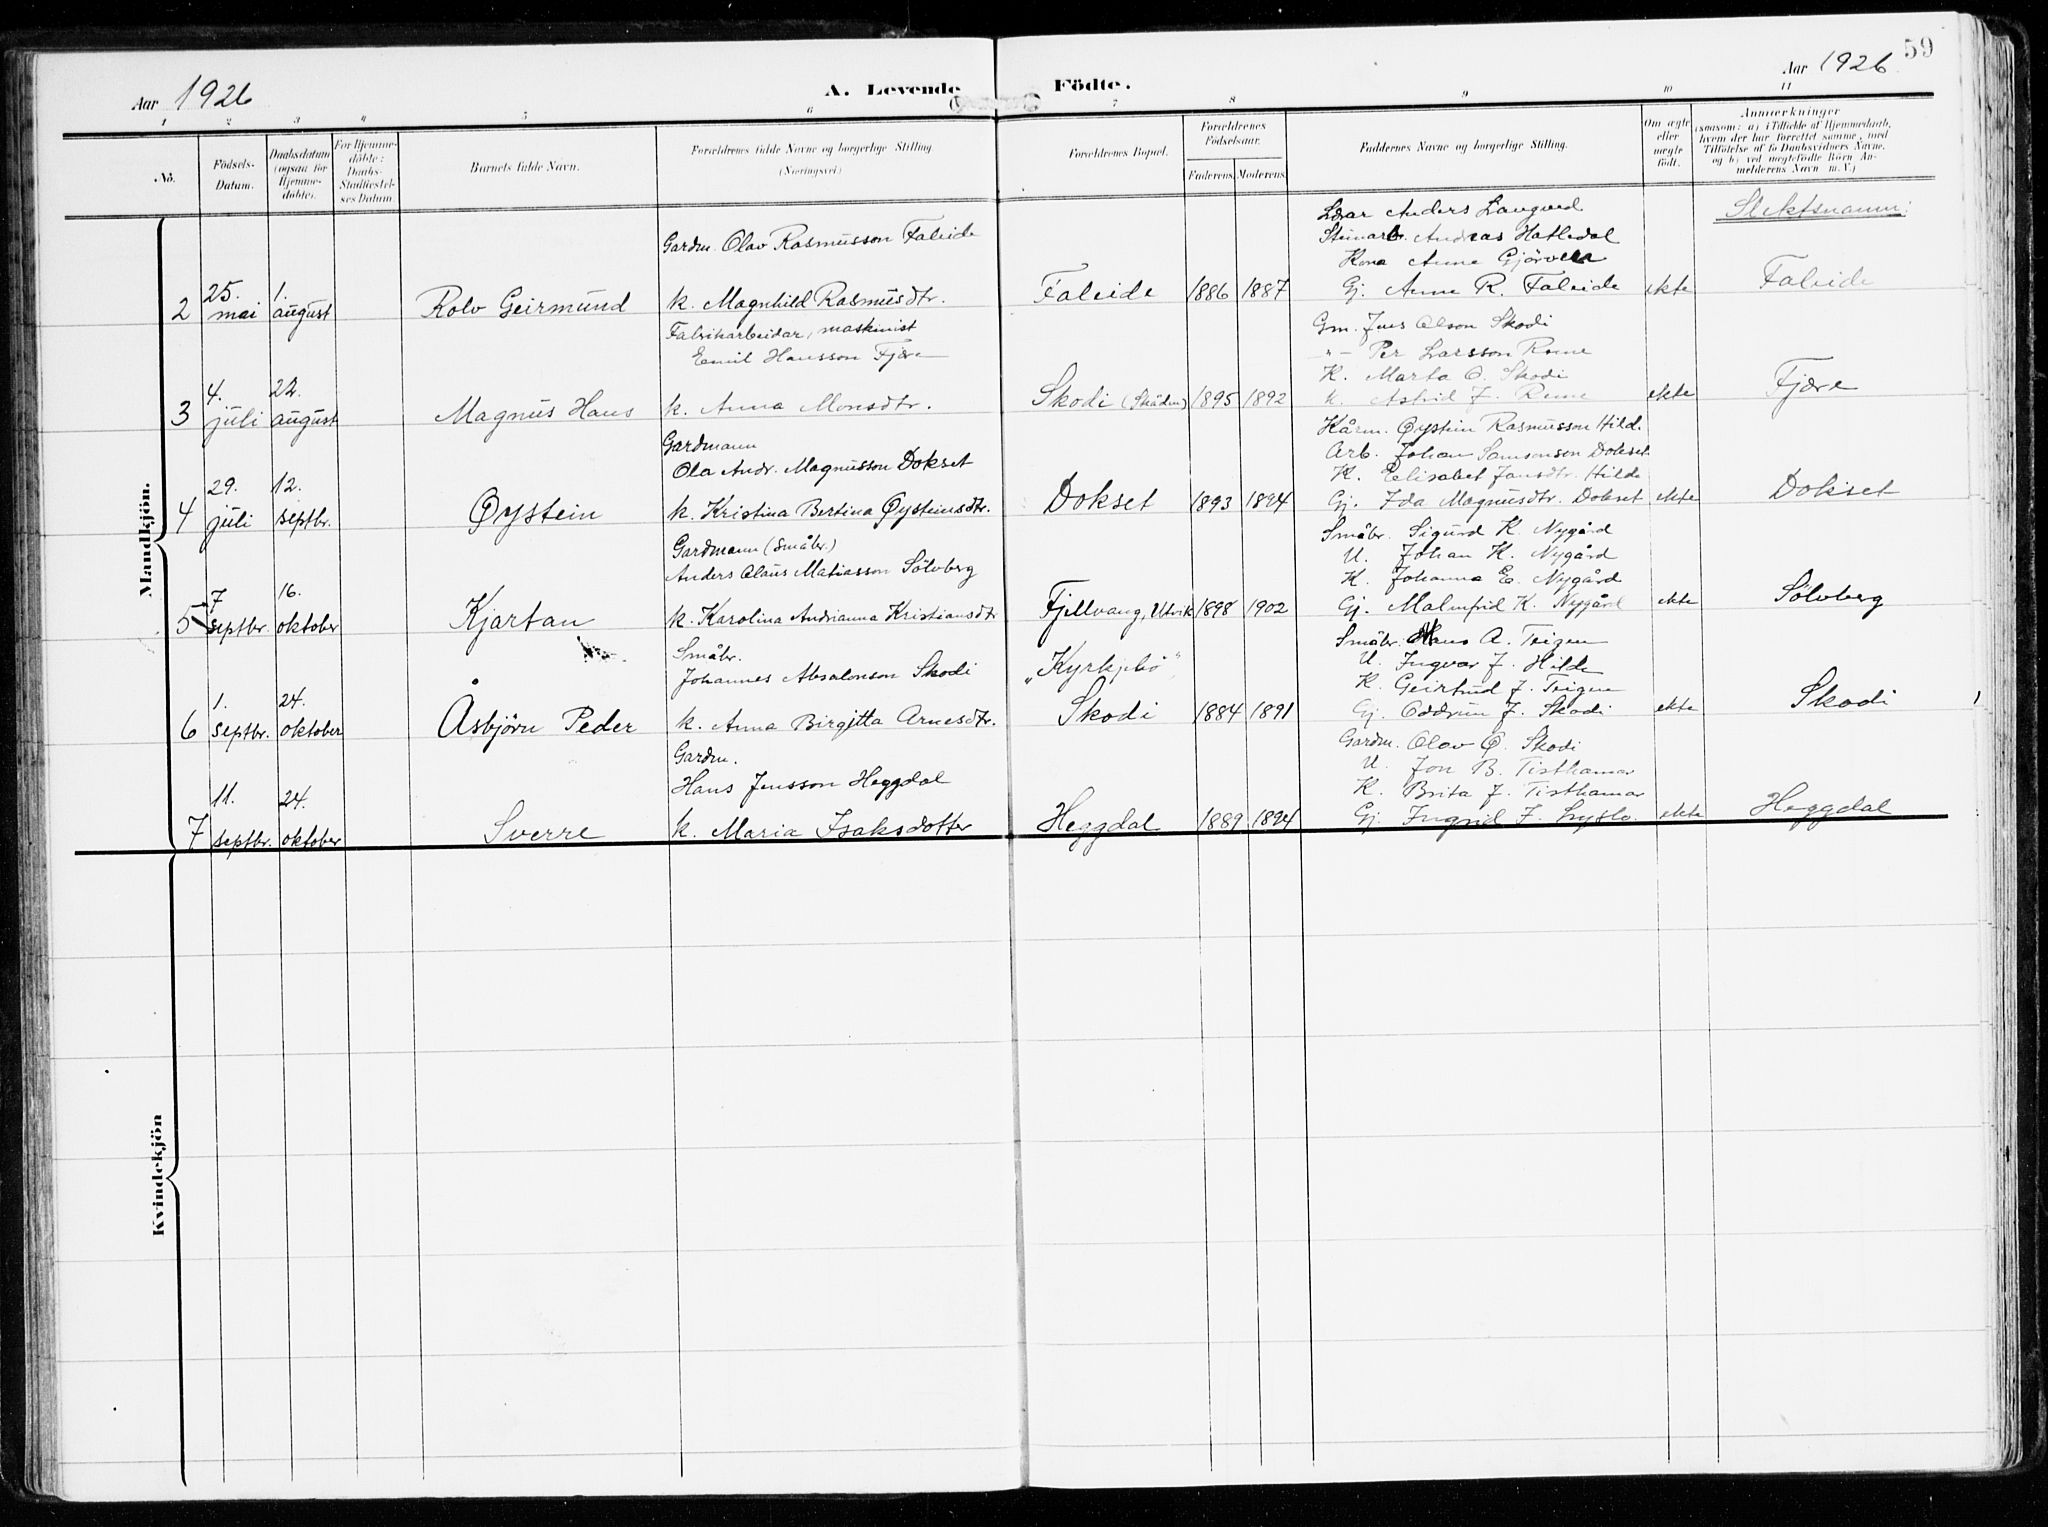 59
Aar 1926
A. Levende Födte.
Aar 1926
1 2 3 4 5 6 7 8 9 10 11
No.
Födsels-Datum.
Daabsdatum (ogsaa for Hjemmedöbte).
For Hjemmedöbte: Daabs-Stadfæstelses Datum.
Barnets fulde Navn.
Forældrenes fulde Navne og borgerlige Stilling
(Næringsvei)
Forældrenes Bopæl.
Forældrenes Födselsaar.
Faderens. Moderens.
Faddernes Navne og borgerlige Stilling.
Om ægte eller uægte födt.
Anmærkninger
(saasom: a) i Tilfælde af Hjemmedaab, hvem der har forrettet samme, med Tilföielse af to Daabsvidners Navne, og b) ved uægtefödte Börn Anmelderens Navn m. V.)
Slektsnamn:
Mandkjön.
Gardm. Olav Rasmusson Faleide
Lærar Anders Langved
Andreas Hatledal
Kona Anne Gjörven
2 25. mai 1. august Rolv Geirmund k. Magnhild Rasmusdtr. Faleide 1886 1887 Gj. Anne R. Faleide ekte Faleide
Fabrikarbeidar, maskinist
Emil Hansson Fjære
Gm. Jens Olson Skodi
-"- Per Larsson Rome
K. Marta O. Skodi
3 4. juli 22. august Magnus Hans k. Anna Monsdtr. Skodi 1895 1892 k. Astrid J. ekte Fjære
Gardmann
Ola Andr. Magnusson Dokset
Kårm. Øystein Rasmusson Hilde
Arb. Johan Samsonson Dokset
K. Elisabet Jansdtr. Hilde
4 29. juli 12. septbr. Øystein k. Kristina Bertina Øysteinsdtr. Dokset 1893 1894 Gj. Ida Magnusdtr. Dokset ekte Dokset
Gardmann (småbr.)
Anders Olaus Matiasson Sölvberg
Småbr. Sigurd K. Nygård
U. Johan K. Nygård
K. Johanna E. Nygård
5 7 septbr. 16. oktober Kjartan k. Karolina Andrianna Kristiansdtr Fjellvang, Utvik 1898 1902 Gj. Malmfrid K. Nygård ekte Sölvberg
Småbr.
Johannes Absalonson Skodi
"Kyrkjebö"
Småbr. Hans A. Teigen
U. Ingvar J. Hilde
K. Geirtrud J. Teigen
6 1. septbr. 24. oktober Åsbjörn Peder k. Anna Birgitta Arnesdtr. Skodi 1884 1891 Gj. Oddrun J. Skodi ekte Skodi
Gardm.
Hans Jensson Heggdal
Gardm. Olav Ø. Skodi
U. Jon B. Tisthamar
K. Brita J. Tisthamar
7 11. septbr. 24. oktober Sverre k. Maria Isaksdotter Heggdal 1889 1894 Gj. Ingrid J. ekte Heggdal
Kvindekjön